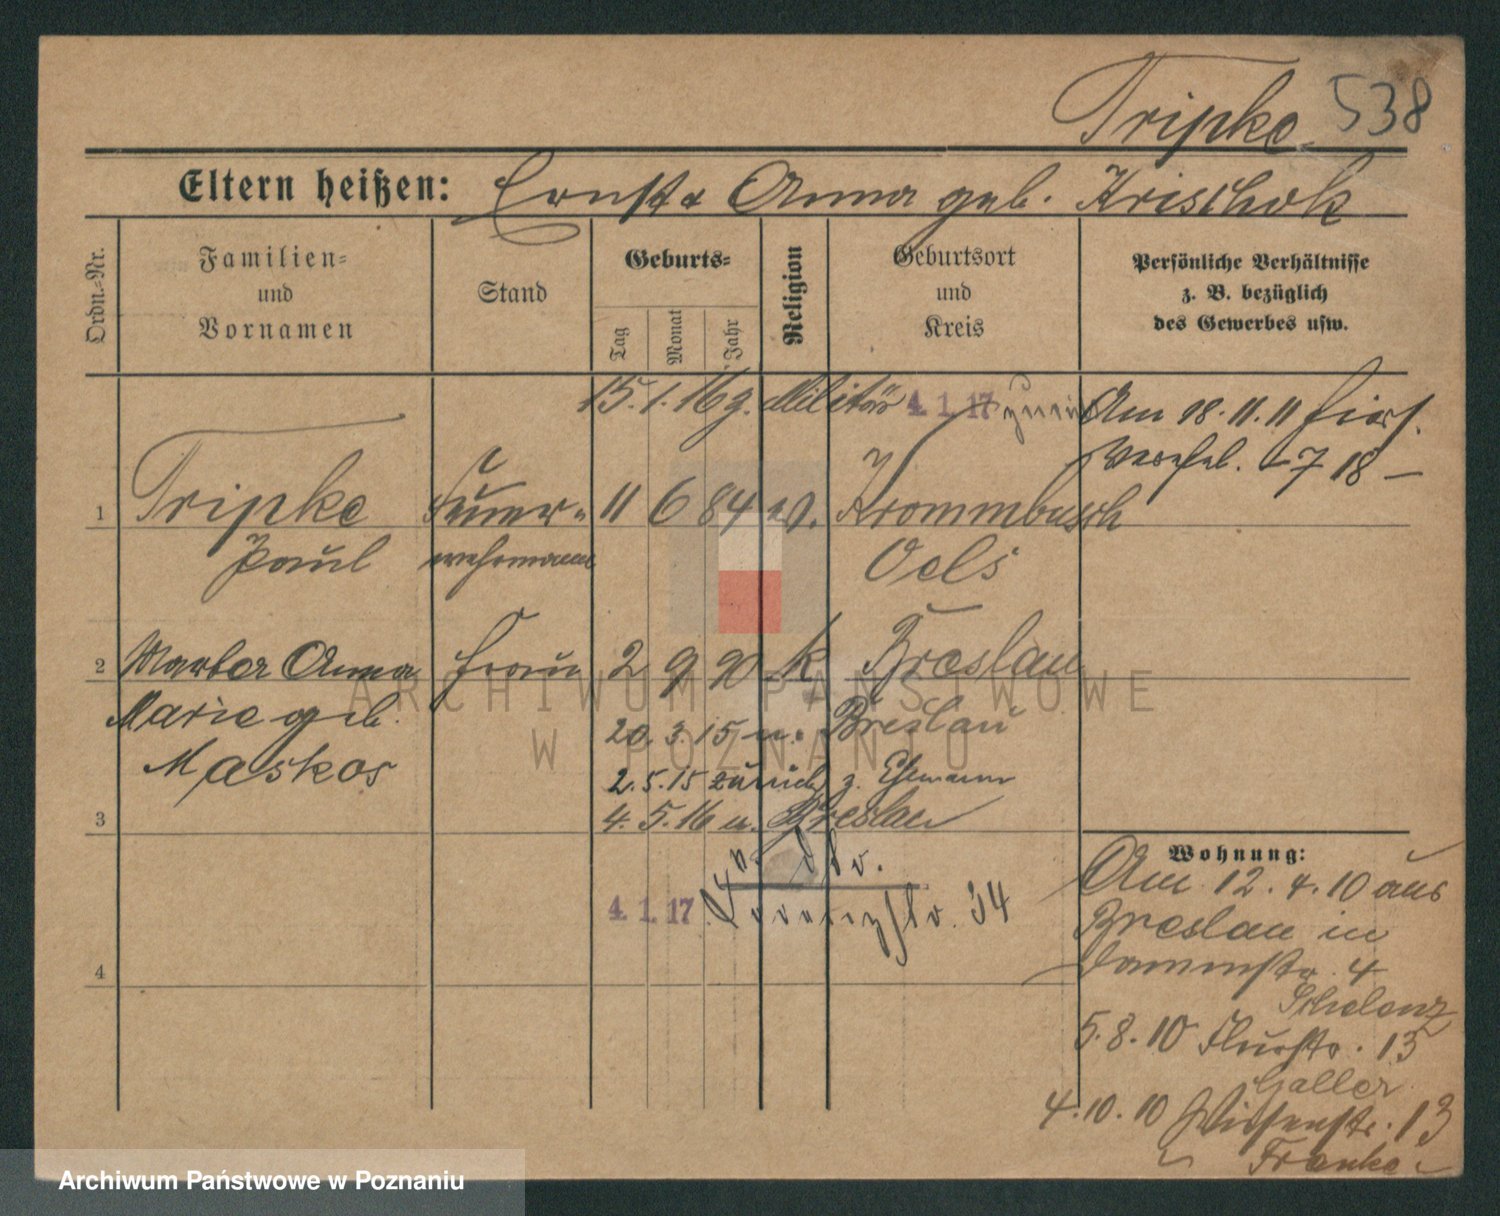 Tripke 538
Eltern heißen: Ernst & Anna geb. Krischok
Ordn.=Nr.
Familien=
und
Vornamen
Stand
Geburts=
Tag
Monat
Jahr
Religion
Geburtsort
und
Kreis
Persönliche Verhältnisse
z. B. bezüglich
des Gewerbes usw.
15.1.16 z. Militär 4.1.17 zurück
Am 18.11.11
7 18 –
1 Tripke Feuer- 11 6 84 ev. Krommbusch
Paul wehrmann Oels
2 Martha Anna Frau 2 9 90 k Breslau
Marie geb.
Maskos
20.3.15 n. Breslau
2.5.15 zurück z. Ehemann
3 4.5.16 n. Breslau
v. dto.
4.1.17 Lorenzstr. 34
4
Wohnung:
Am 12.4.10 aus
Breslau in
Dammstr. 4
Schelenz
5.8.10 Flurstr. 13
Galler
4.10.10 Wiesenstr. 13
Franke
ARCHIWUM PAŃSTWOWE
W POZNANIU
Archiwum Państwowe w Poznaniu